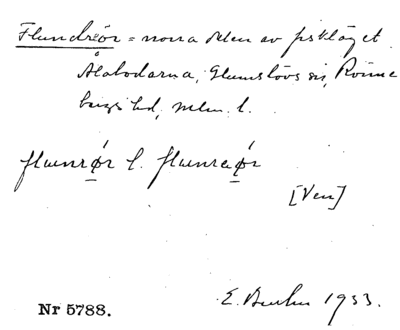 Flundrör = norra delen av fiskläget
Ålabodarna, Glumslövs sn, Rönne
bergs hd, Mlm. l.
flunrǿr l. flunraǿr
[Ven]
Nr 5788. E. 1933.